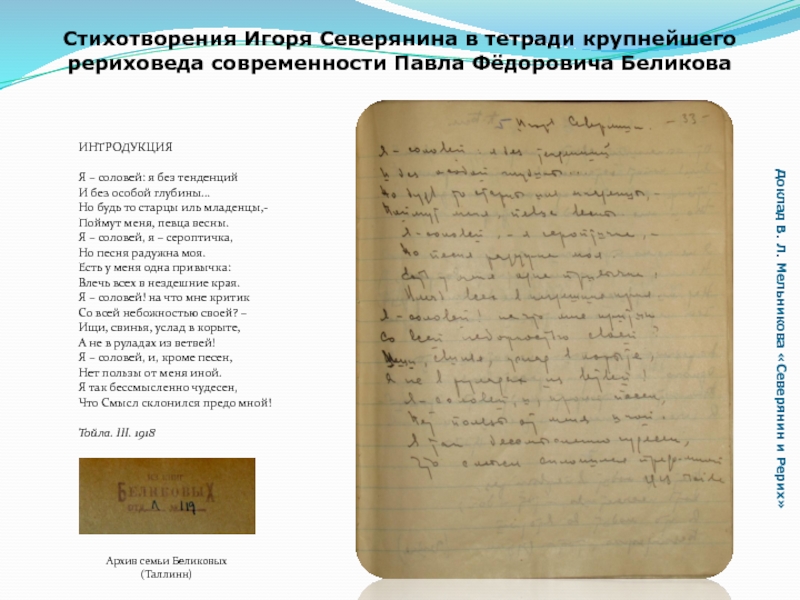 Стихотворения Игоря Северянина в тетради крупнейшего
рериховеда современности Павла Фёдоровича Беликова
ИНТРОДУКЦИЯ
Я – соловей: я без тенденций
И без особой глубины...
Но будь то старцы иль младенцы,-
Поймут меня, певца весны.
Я – соловей, я – сероптичка,
Но песня радужна моя.
Есть у меня одна привычка:
Влечь всех в нездешние края.
Я – соловей! на что мне критик
Со всей небожностью своей? –
Ищи, свинья, услад в корыте,
А не в руладах из ветвей!
Я – соловей, и, кроме песен,
Нет пользы от меня иной.
Я так бессмысленно чудесен,
Что Смысл склонился предо мной!
Тойла. III. 1918
БЕЛИКОВЫХ
Архив семьи Беликовых
(Таллинн)
5 Игорь Северянин. - 33 -
Я - соловей - я без тенденций
И без особой глубины...
Но будь то старцы иль младенцы, -
Поймут меня, певца весны.
Я - соловей, - я сероптичка, -
Но песня радужна моя.
Есть у меня одна привычка,
всех в нездешние края
Я - соловей! на что мне критик
Со всей небожностью своей?
Ищи, свинья, услад в корыте,
А не в руладах из ветвей!
Я - соловей, и, кроме песен,
Нет пользы от меня иной.
Я так бессмысленно чудесен,
Что смысл склонился предо мной
Доклад В. Л. Мельникова «Северянин и Рерих»